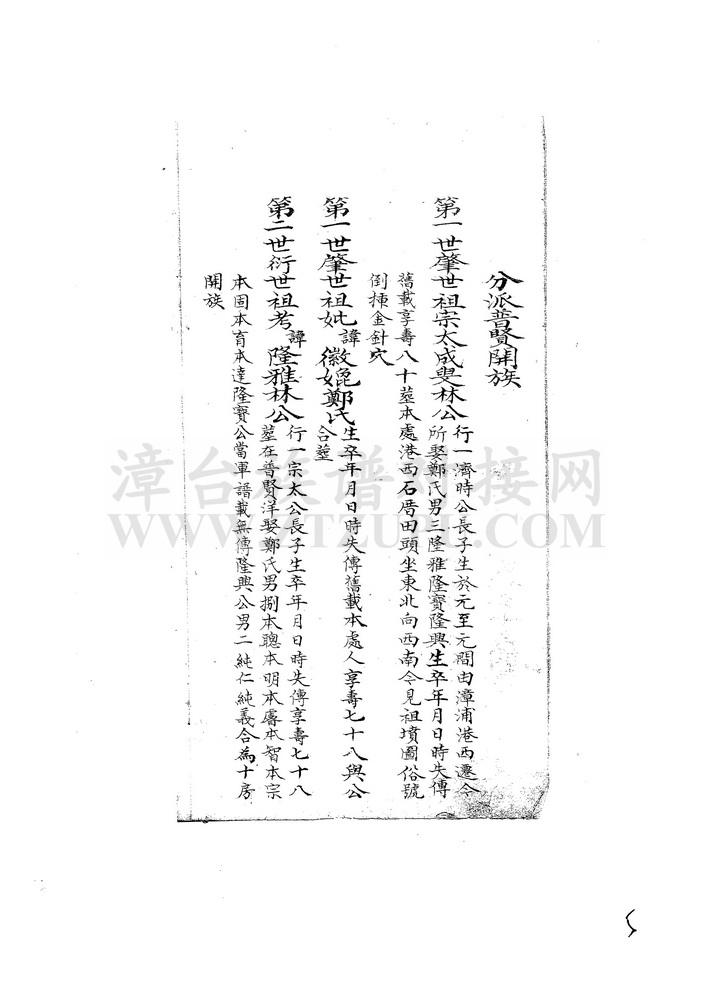 分派普賢開族
第一世肇世祖宗太成叟林公行一濟時公長子生於元至元間由漳浦港西遷今
所娶鄭氏男三隆雅隆寶隆興生卒年月日時失傳
舊載享壽八十墓本處港西石厝田頭坐東北向西南今見祖墳圖俗號
倒揀金針穴
第一世肇世祖妣諱徽媲鄭氏生卒年月日時失傳舊載本處人享壽七十八與公
合塟
第二世衍世祖考諱隆雅林公行一宗太公長子生卒年月日時失傳享壽七十八
墓在普賢洋娶鄭氏男捌本聰本明本睿本智本宗
本固本育本達隆寶公當軍譜載無傳隆興公男二純仁純義合為十房
開族
漳台族谱 接网
WWW.ZTZUPU.COM
5